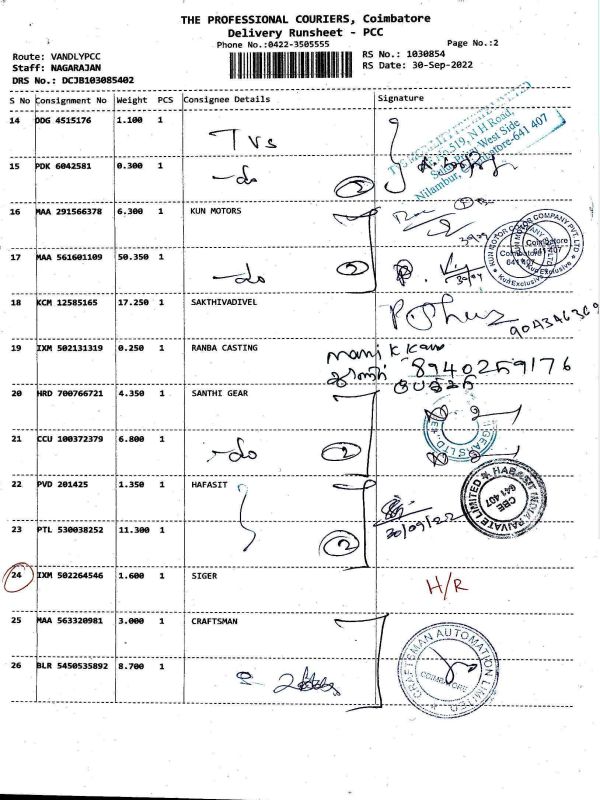 THE PROFESSIONAL COURIERS, Coimbatore
Delivery Runsheet - PCC
Phone No.:0422-3505555
Page No.:2
Route: VANDLYPCC
RS No.: 1030854
Staff: NAGARAJAN
RS Date: 30-Sep-2022
DRS No.: DCJB103085402
S No Consignment No Weight PCS Consignee Details Signature
14 DDG 4515176 1.100 1 TVs
519, N H Road,
West Side
Nilambur, Coimbatore-641 407
15 PDK 6042581 0.300 1 -do 2
16 MAA 291566378 6.300 1 KUN MOTORS
KUN MOTOR COMPANY PVT. LTD
Coimbatore
641 407
Kun Exclusive
17 MAA 561601109 50.350 1 -do 2
18 KCM 12585165 17.250 1 SAKTHIVADIVEL
19 IXM 502131319 0.250 1 RANBA CASTING
8940259176
20 HRD 700766721 4.350 1 SANTHI GEAR
GEARS LTD.
21 CCU 100372379 6.800 1 -do 2
22 PVD 201425 1.350 1 HAFASIT
30/09/22
HABASIT INDIA PRIVATE LIMITED
CBE
641 407
23 PTL 530038252 11.300 1 2
24 IXM 502264546 1.600 1 SIGER H/R
25 MAA 563320981 3.000 1 CRAFTSMAN
CRAFTSMAN AUTOMATION LIMITED
COIMBATORE
26 BLR 5450535892 8.700 1